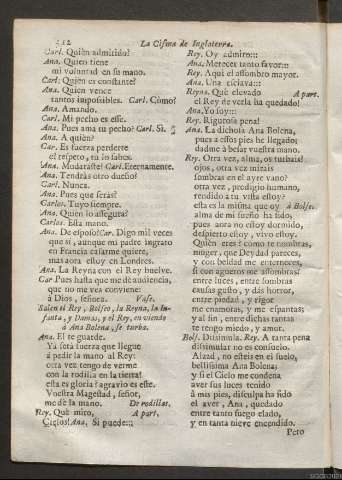 12
La Cisma de Inglaterra.
Carl. Quièn admitido?
Ana. Quien tiene
mi voluntad en su mano.
Carl. Quièn es constante?
Ana. Quien vence
tantos impossibles. Carl. Còmo?
Ana. Amando.
Carl. Mi pecho es esse.
Ana. Pues ama tu pecho? Carl. Sì.
Ana. A quièn?
Car. Es fuerza perderte
el respeto, tù lo sabes.
Ana. Mudaràste? Carl. Eternamente.
Ana. Tendràs otro dueño?
Carl. Nunca.
Ana. Pues què seràs?
Carlos. Tuyo siempre.
Ana. Quien lo assegura?
Carlos. Esta mano.
Ana. De esposo? Car. Digo mil veces
que sì, aunque mi padre ingrato
en Francia casarme quiere,
mas aora estoy en Londres.
Ana. La Reyna con el Rey buelve.
Car Pues hasta que me dè audiencia,
que no me vea conviene:
à Dios, señora. Vase.
Salen el Rey, Bolseo, la Reyna, la In-
fanta, y Damas, y el Rey, en viendo
à Ana Bolena, se turba.
Ana. El te guarde.
Ya serà fuerza que llegue
à pedir la mano al Rey:
otra vez tengo de verme
con la rodilla en la tierra!
esta es gloria? agravio es este.
Vuestra Magestad, señor,
me dè la mano. De rodillas.
Rey. Què miro, A parte.
Cielos! Ana. Si puede:::
Rey. Oy admiro:::
Ana. Merecer tanto favor:::
Rey. Aqui el assombro mayor.
Ana. Una esclava:::
Reyna. Què elevado A part.
el Rey de verla ha quedado!
Ana. Yo soy:::
Rey. Rigurosa pena!
Ana. La dichosa Ana Bolena,
pues à essos pies he llegado;
dadme à besar vuestra mano.
Rey. Otra vez, alma, os turbais?
ojos, otra vez mirais
sombras en el ayre vano?
otra vez, prodigio humano,
rendido à tu vista estoy?
esta es la misma que oy à Bols.
alma de mi sueño ha sido,
pues aora no estoy dormido,
despierto estoy, vivo estoy.
Quièn eres? como te nombras,
muger, que Deydad pareces,
y con beldad me enterneces,
si con agueros me assombras?
entre luces, entre sombras
causas gusto, y dàs horror,
entre piedad, y rigor
me enamoras, y me espantas;
y al fin, entre dichas tantas
te tengo miedo, y amor.
Bols. Dissimula. Rey. A tanta pena
dissimular no es consuelo.
Alzad, no esteis en el suelo,
bellissima Ana Bolena;
y si el Cielo me condena
aver sus luces tenido
à mis pies, disculpa ha sido
el aver, Ana, quedado
entre tanto fuego elado,
y en tanta nieve encendido.
Pero